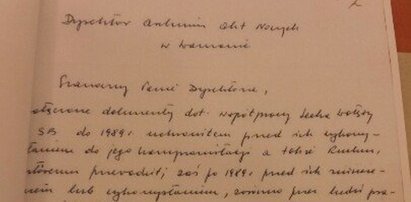 Dyrektor Archiwum Akt Nowych
w Warszawie
Szanowny Panie Dyrektorze,
dokumenty dot. współpracy Lecha Wałęsy
SB do 1989r uchroniłem przed ich wykorzy-
staniem do jego kompromitacji a także Ruchu,
któremu przewodził, zaś po 1989r. przed ich zniszcze-
niem lub wykorzystaniem, zarówno przez ludzi